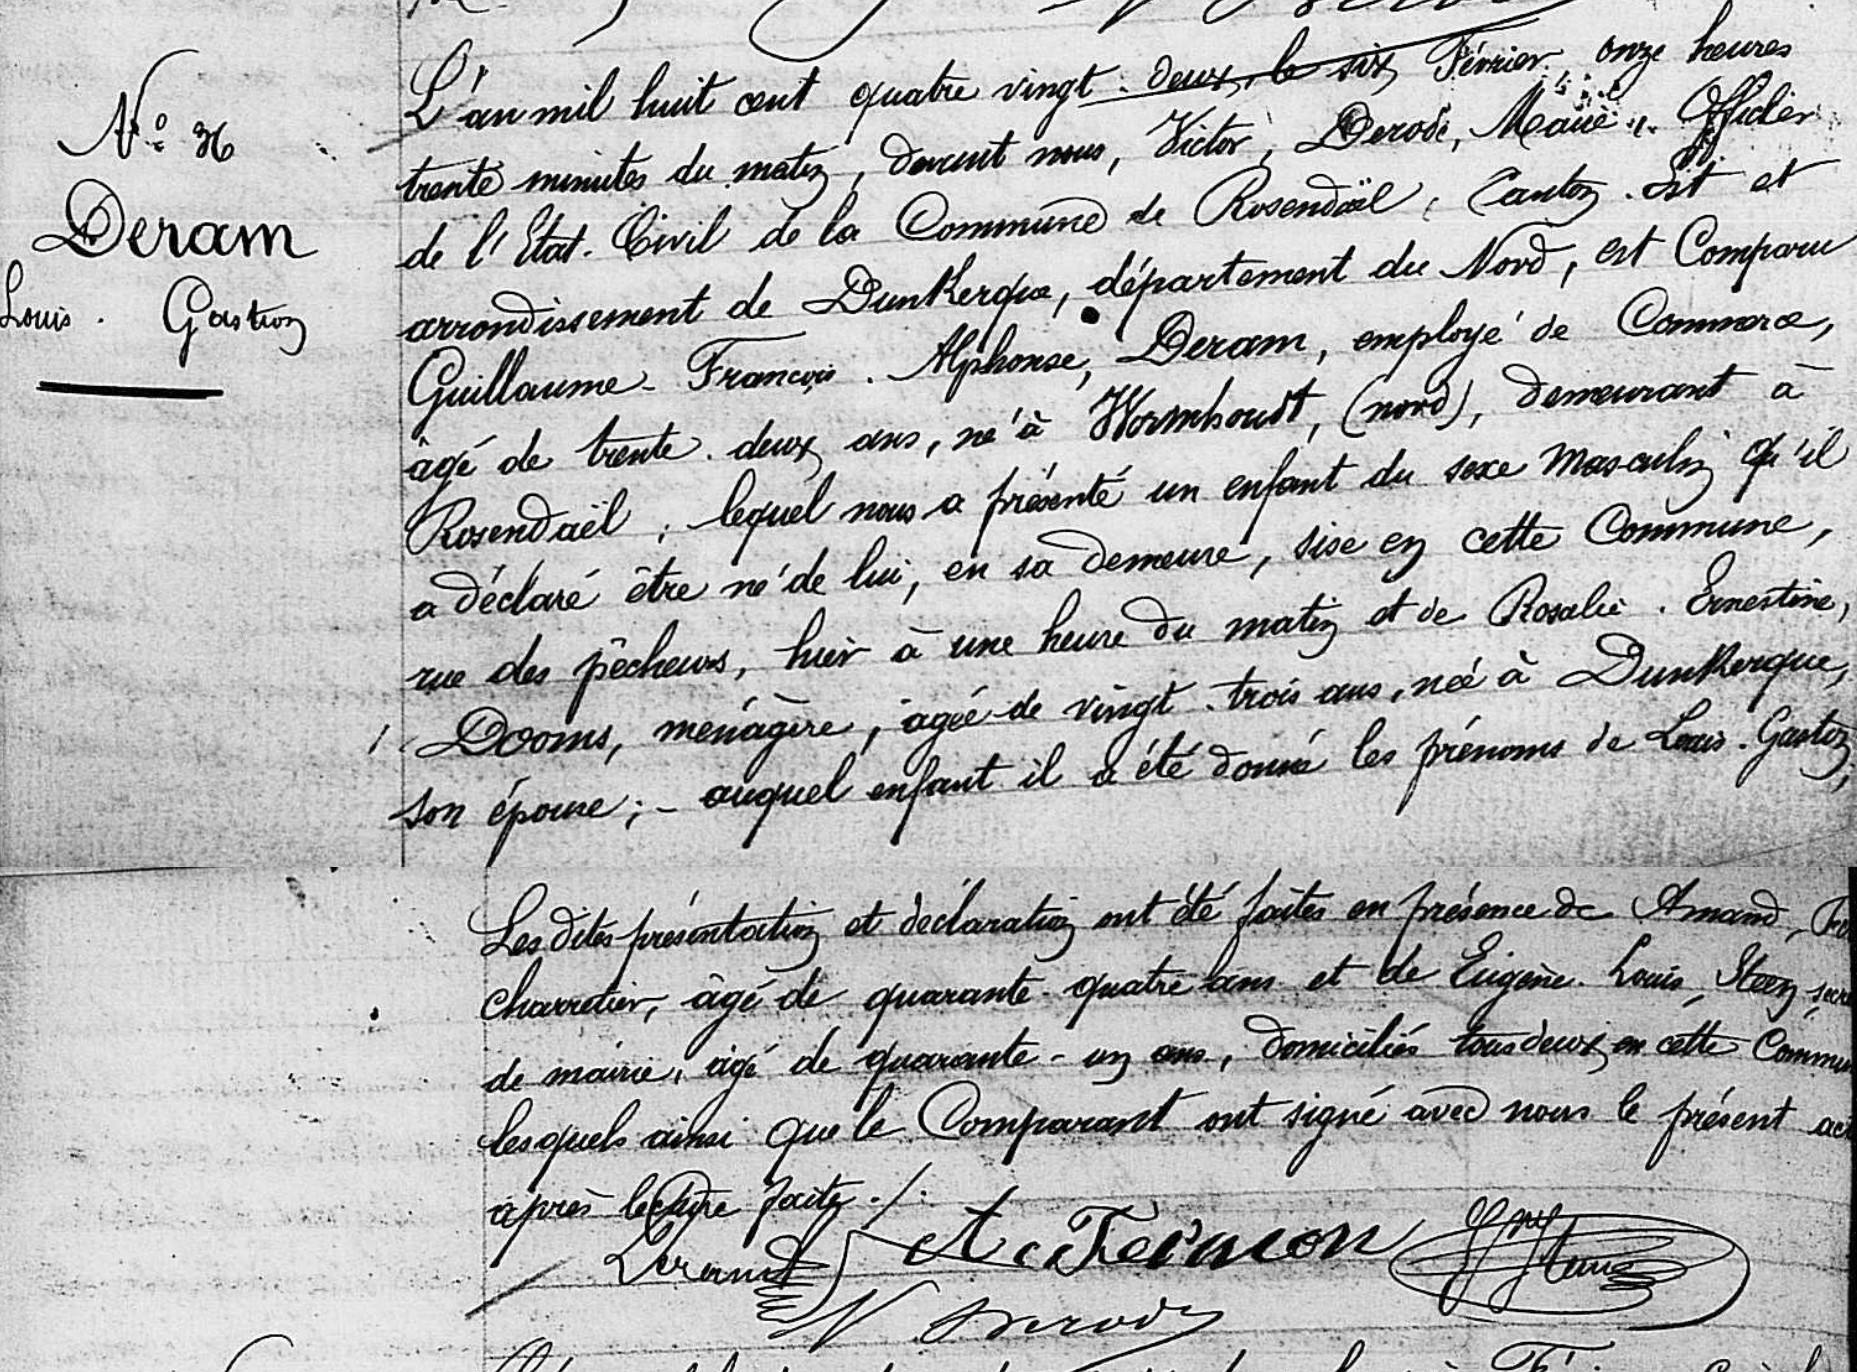 N° 36
Deram
Louis. Gaston
L'an mil huit cent quatre vingt-deux, le six Février onze heures
trente minutes du matin, devant nous, Victor, Derode, Maire, Officier
de l'Etat-Civil de la Commune de Rosendaël, Canton Est et
arrondissement de Dunkerque, département du Nord, est Comparu
Guillaume-François-Alphonse, Deram, employé de Commerce,
âgé de trente-deux ans, né à Wormhoudt, (nord), demeurant à
Rosendaël; lequel nous a présenté un enfant du sexe masculin qu'il
a déclaré être né de lui, en sa demeure, sise en cette Commune,
rue des pêcheurs, hier à une heure du matin et de Rosalie-Ernestine,
Dooms, ménagère, âgée de vingt-trois ans, née à Dunkerque,
son épouse; - auquel enfant il a été donné les prénoms de Louis-Gaston;
Les dites présentation et déclaration ont été faites en présence de Amand,
charretier, âgé de quarante-quatre ans et de Eugène-Louis, Steen,
de mairie, âgé de quarante-un ans, domiciliés tous deux en cette Commun
lesquels ainsi que le Comparant ont signé avec nous le présent act
après lecture faite ./.
Deram A. Feramon
V Derode